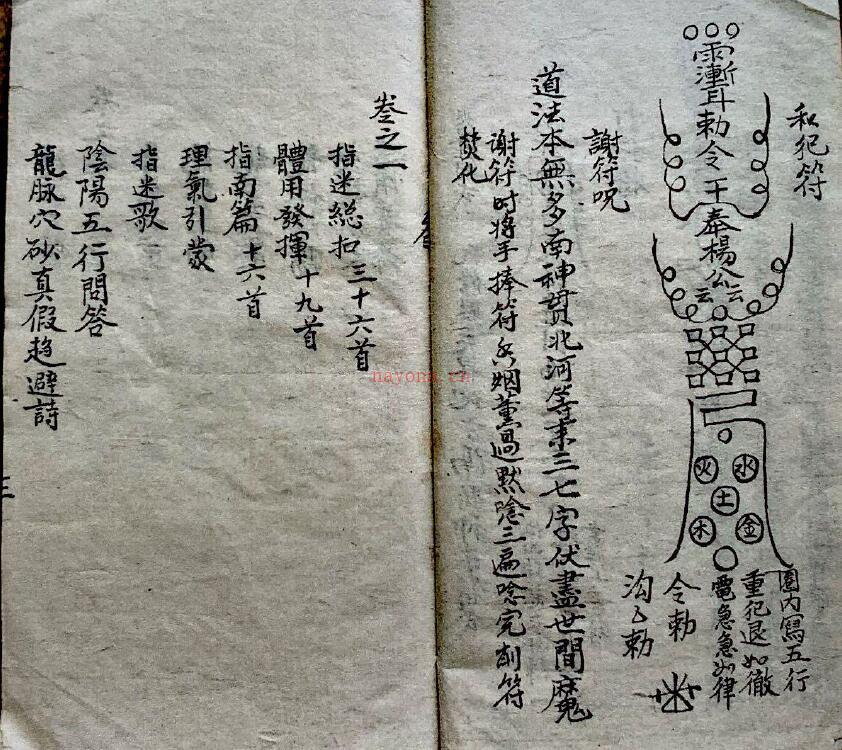 私犯符
雨漸耳勅令
奉楊公
云云
火水
土
木金
圈内寫五行
重犯退如徹
電急急如律
令勅
勅
謝符呪
道法本無多南神貫北河等來三七字伏盡世間魔
謝符时将手捧符烟薰過默唸三遍唸完削符
焚化
卷之一
指迷総扣三十六首
體用發揮十九首
指南篇十六首
理氣引蒙
指迷歌
陰陽五行問答
龍脉穴砂真假趋避詩
三
nayona.cn